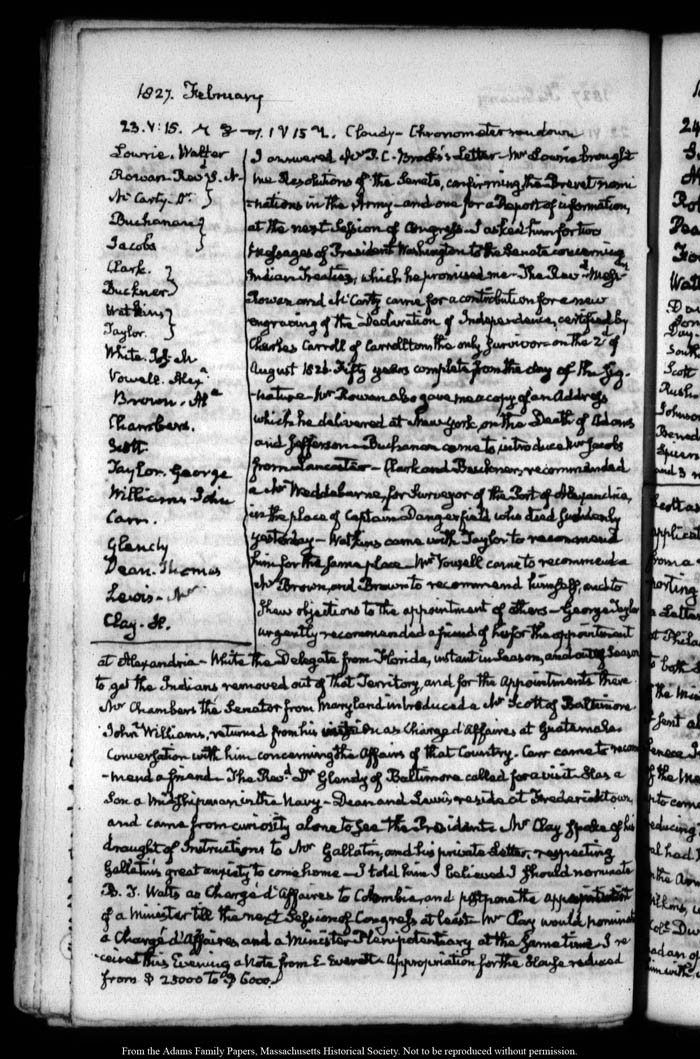 1827. February
23. V: 15. IV 15 Cloudy - Chronometer run down
Lowrie, Walter
Rowan Revd. S. N.
McCarty. Dr.
Buchanan
Jacobs
Clark.
Buckner
Watkins
Taylor.
White. J. M
Vowell. Alexa.
Brown. Ala
Chambers.
Scott
Taylor. George
Williams John
Carr.
Glendy
Dean. Thomas
Lewis - Mr
Clay. H.
I answered Mr P. C. Brooks's Letter - Mr Lowrie brought
me Resolutions of the Senate, confirming the Brevet nomi
-nations in the Army - and one for a Report of information,
at the next Session of Congress. I asked him for two
Messages of President Washington to the Senate concerning
Indian Treaties, which he promised me - The Revd. Messrs
Rowan and McCarty came for a contribution for a new
engraving of the Declaration of Independence, certified by
Charles Carroll of Carrollton the only survivor on the 2d of
August 1826. Fifty years complete from the day of the Sig-
-nature Mr Rowan also gave me a copy of an Address
which he delivered at New York, on the Death of Adams
and Jefferson - Buchanan came to introduce Mr Jacobs
from Lancaster - Clark and Buckner, recommended
a Mr for Surveyor of the Port of Alexandria,
in the place of Captain Dangerfield who died suddenly
yesterday - Watkins came with Taylor to recommend
him for the same place - Mr Vowell came to recommend a
Mr Brown, and Brown to recommend himself, and to
shew objections to the appointment of others - George Taylor
urgently recommended a friend of his for the appointment
at Alexandria - White the Delegate from Florida, instant in Season, and out of Season
to get the Indians removed out of that Territory, and for the Appointments there
Mr Chambers the Senator from Maryland introduced a Mr Scott of Baltimore
John Williams, returned from his as Chargé d'Affaires at Guatemala
Conversation with him concerning the Affairs of that Country. Carr came to recom
-mend a friend - The Revd. Dr Glendy of Baltimore called for a visit - Has a
Son a Midshipman in the Navy - Dean and Lewis reside at Fredericktown,
and came from curiosity alone to see the President - Mr Clay spoke of his
draught of Instructions to Mr Gallatin, and his private Letter, respecting
Gallatin's great anxiety to come home - I told him I believed I should nominate
B. T. Watts as Chargé d'Affaires to Colombia, and postpone the appointment
of a Minister till the next Session of Congress at least - Mr Clay would nominate
a Chargé d'Affaires, and a Minister Plenipotentiary at the same time. I re
-ceived this Evening a Note from E Everett - Appropriation for the House reduced
from $ 25000 to $ 6000.
From the Adams Family Papers, Massachusetts Historical Society. Not to be reproduced without permission.